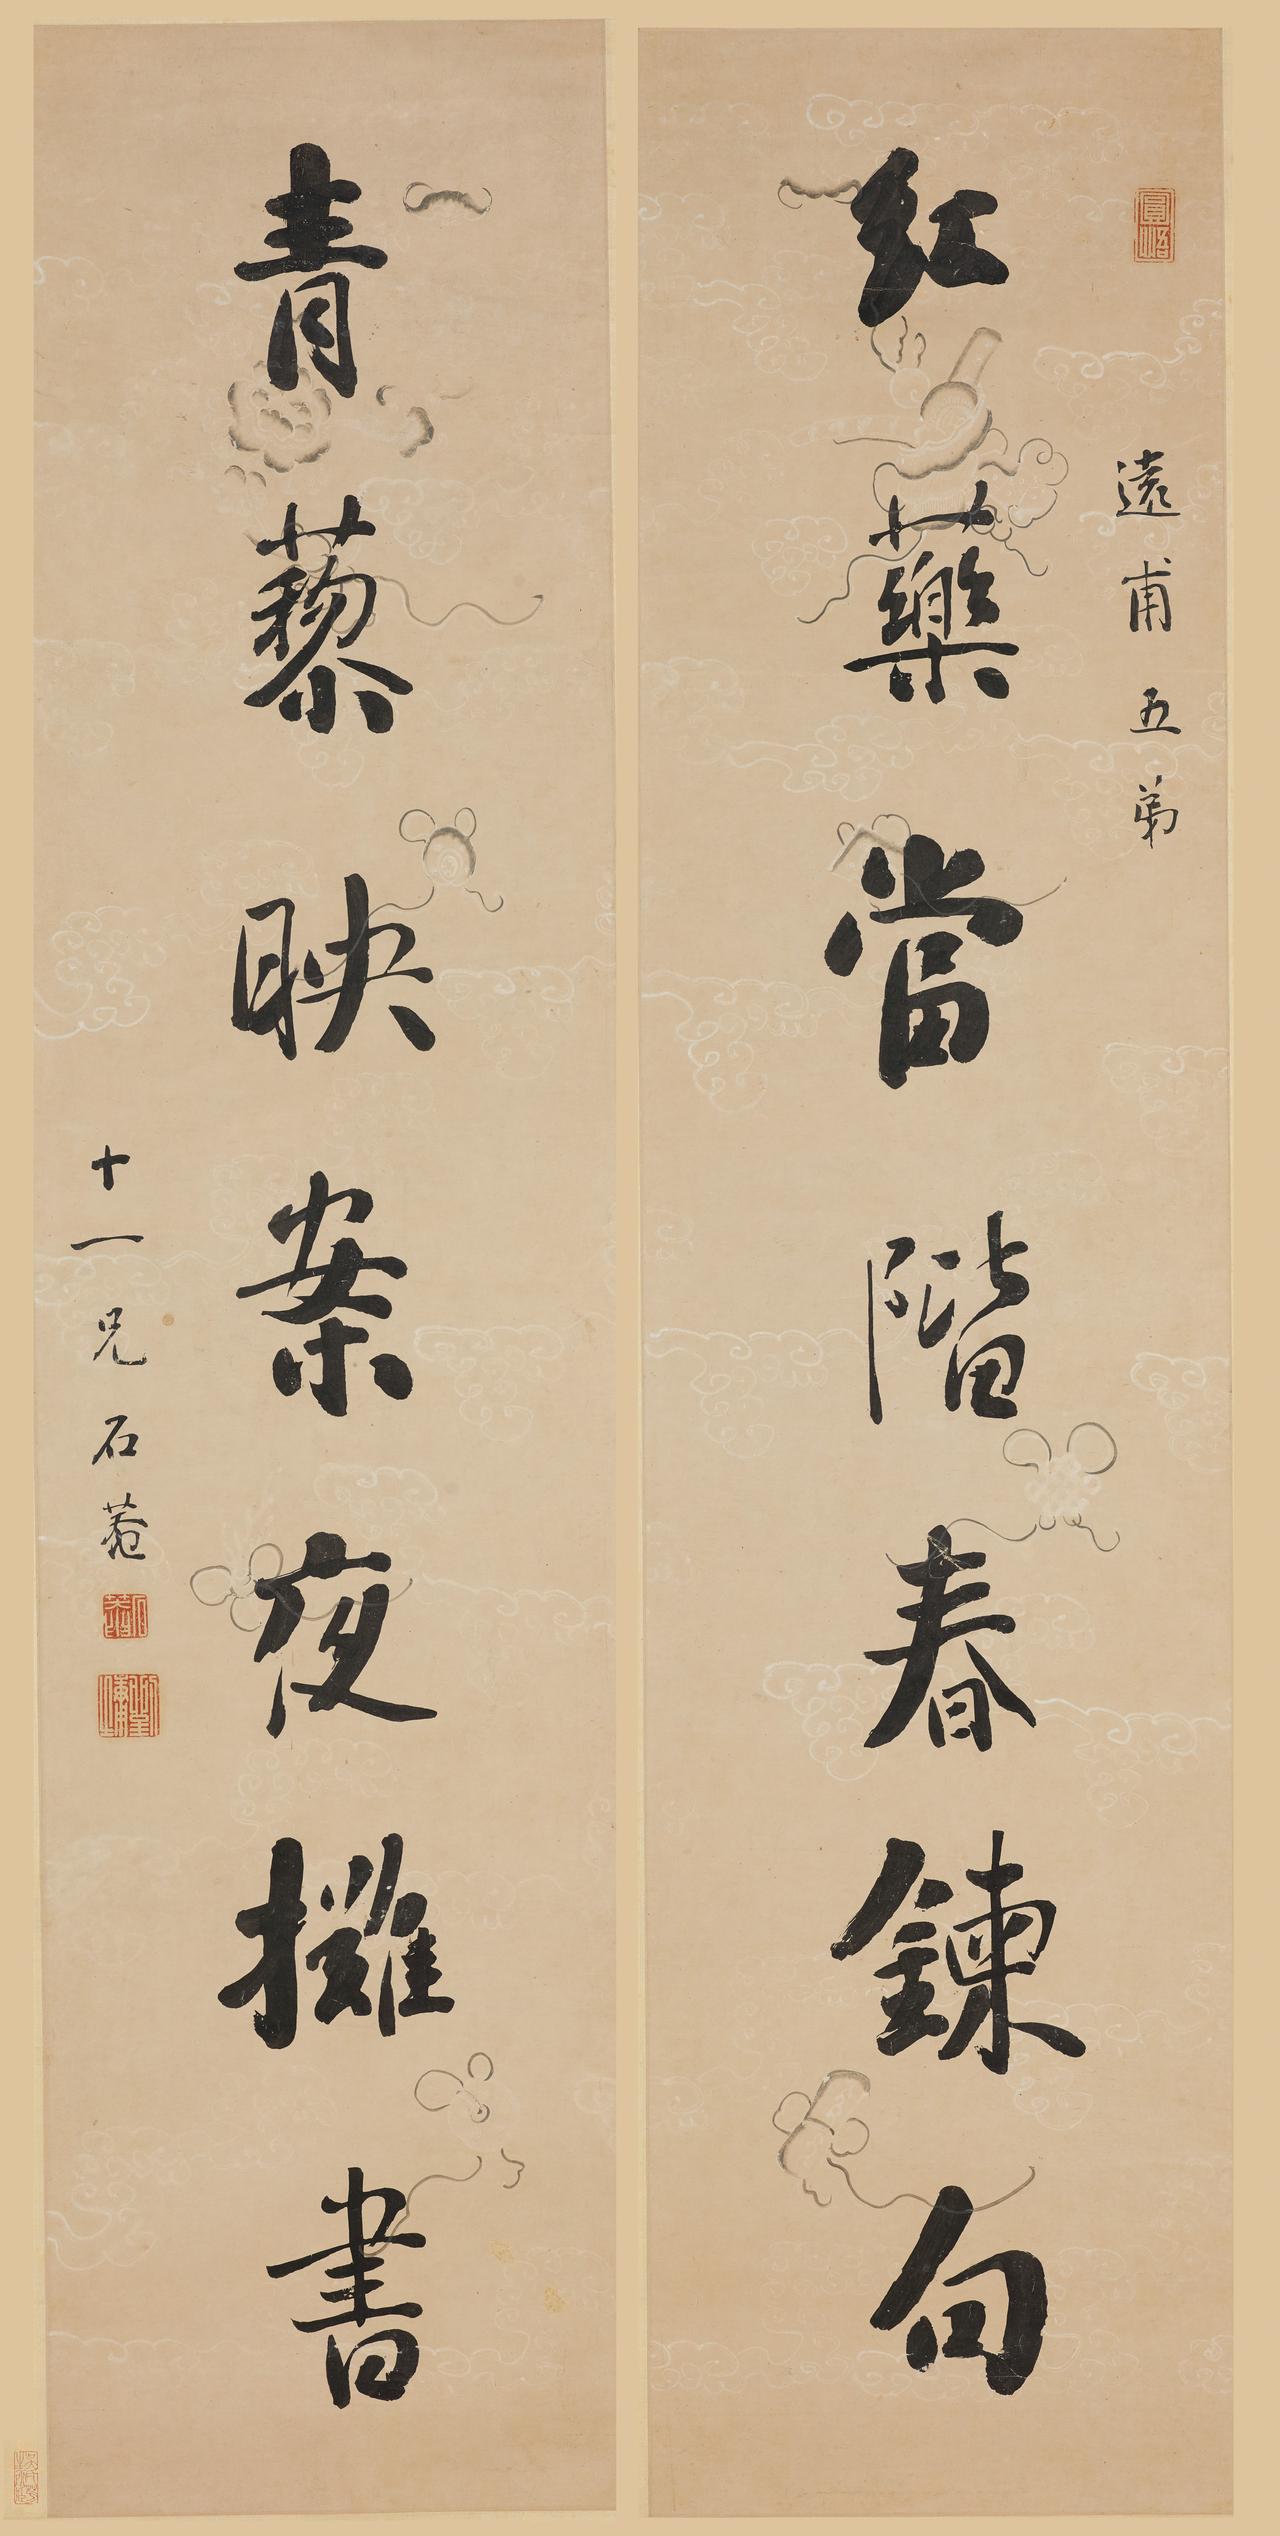 遠甫五弟
紅藥當階春鍊句
青藜映案夜攤書
十一兄石菴